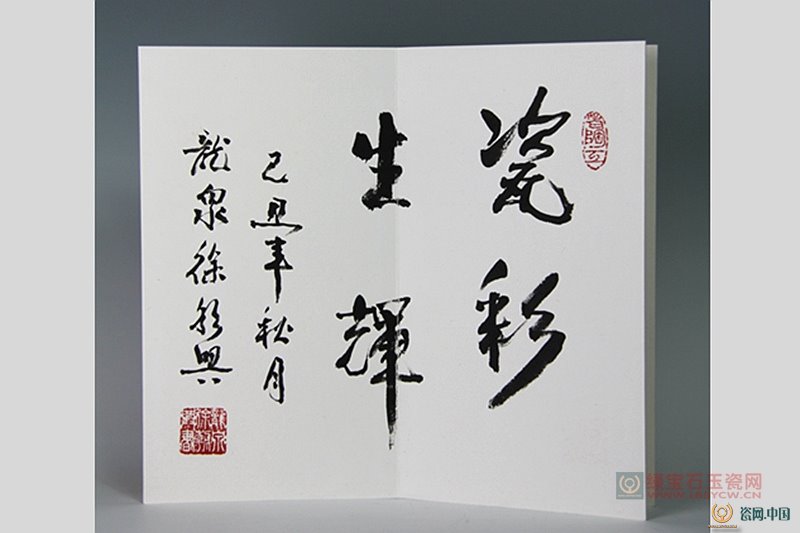 瓷彩
生輝
己丑年秋月
龍泉徐朝興
宝石玉瓷网
瓷网.中国